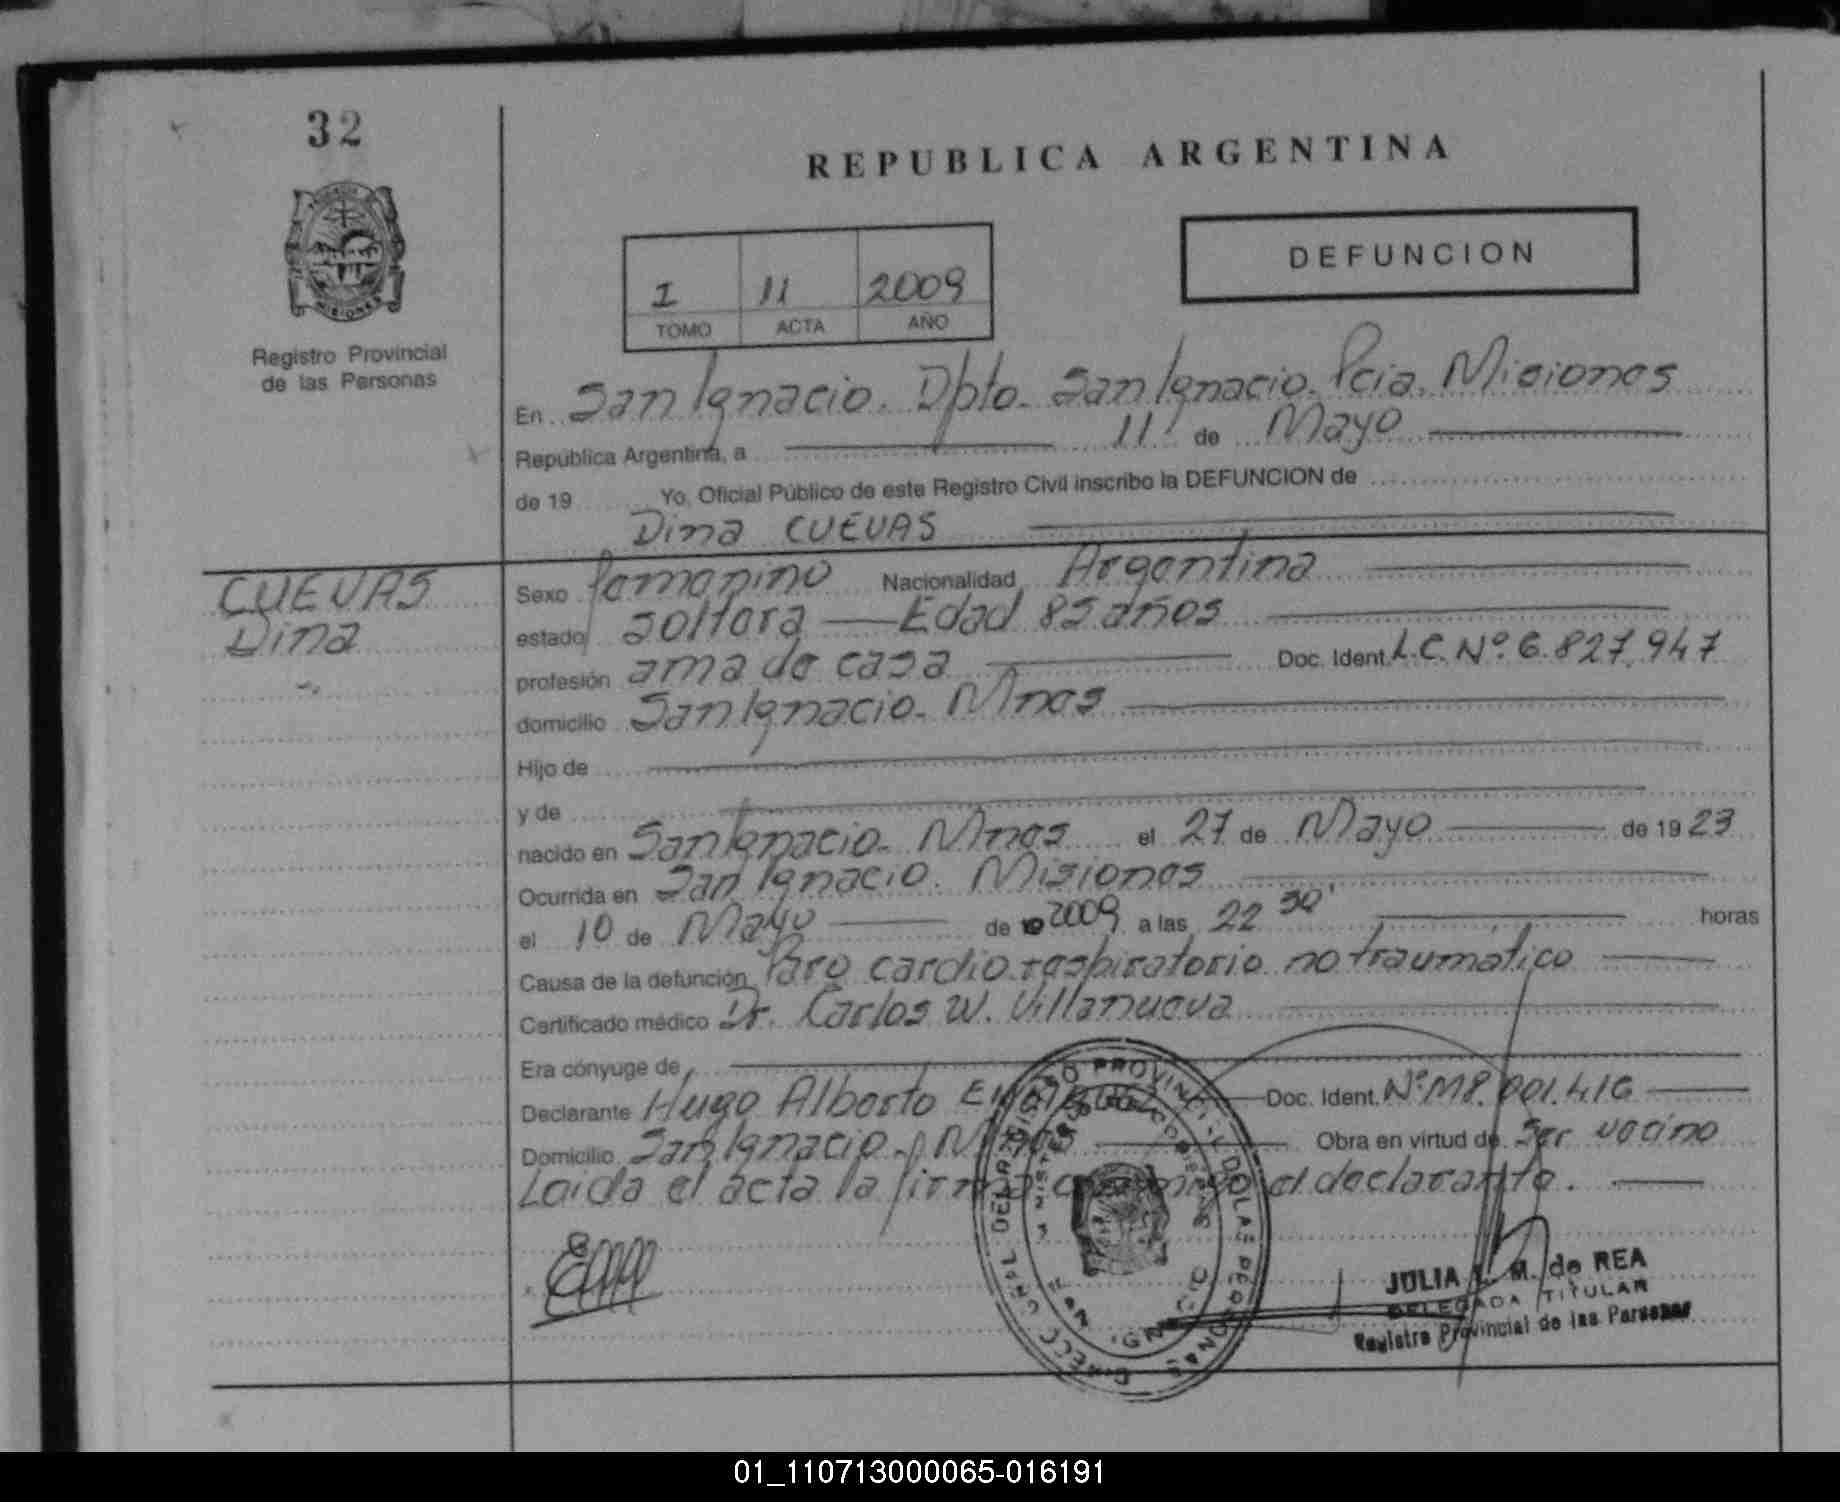 32
REPUBLICA ARGENTINA
DEFUNCION
I 11 2009
TOMO ACTA AÑO
Registro Provincial
de las Personas
En San Ignacio. Dpto. San Ignacio. Pcia. Misiones
República Argentina, a 11 de Mayo
de 19 Yo, Oficial Público de este Registro Civil inscribo la DEFUNCION de
Dina CUEVAS
CUEVAS
Dina
Sexo femenino Nacionalidad Argentina
estado soltera — Edad 85 años
profesión ama de casa Doc. Ident. L.C. Nº. 6.827.947
domicilio San Ignacio. Mnes
Hijo de
y de
nacido en San Ignacio. Mnes el 27 de Mayo de 1923
Ocurrida en San Ignacio. Misiones
el 10 de Mayo de 19 2009 a las 22 30' horas
Causa de la defunción Paro cardio respiratorio no traumático
Certificado médico Dr. Carlos W. Villanueva
Era cónyuge de
Declarante Hugo Alberto Doc. Ident. Nº M8.001.416
Domicilio San Ignacio. Mnes Obra en virtud de ser vecino
Leida el acta la firma conmigo el declarante.
SAN IGNACIO
JULIA de REA
DELEGADA TITULAR
Registro Provincial de las Personas
01_110713000065-016191